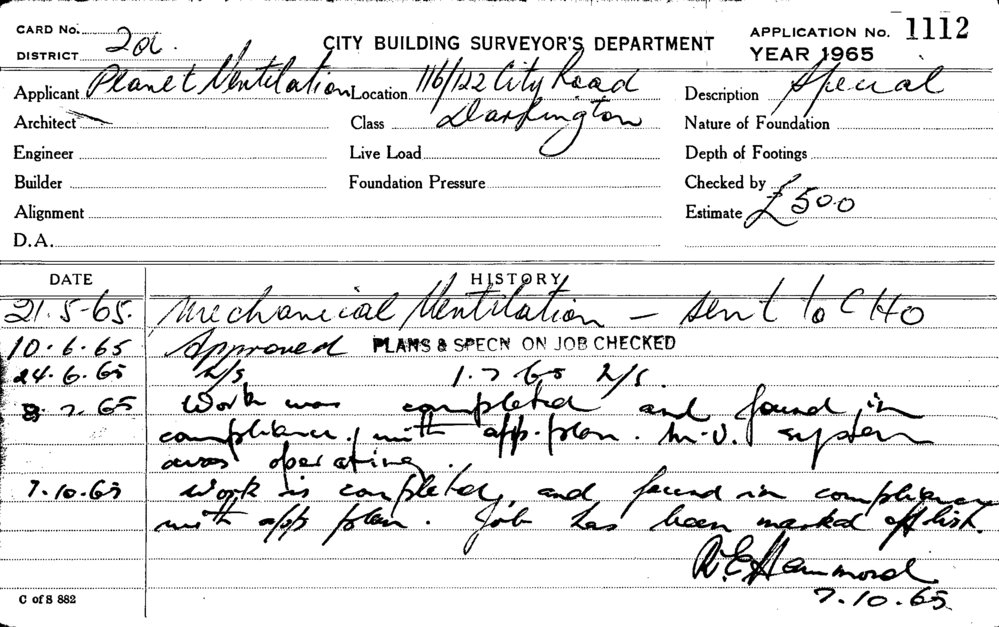 CARD No.
DISTRICT 2a.
CITY BUILDING SURVEYOR'S DEPARTMENT
APPLICATION No. 1112
YEAR 1965
Applicant Planet Ventilation Location 116/122 City Road Description Special
Architect Class Darlington Nature of Foundation
Engineer Live Load Depth of Footings
Builder Foundation Pressure Checked by
Alignment Estimate £500
D.A.
DATE HISTORY
21.5-65. Mechanical Ventilation — sent to CHO
10.6.65 Approved PLANS & SPECN ON JOB CHECKED
24.6.65 1.7.65
8.7.65 Work was completed and found in
compliance with app. plan. M.V. system
was operating.
7.10.65 Work is completed, and found in compliance
with app plan. Job has been marked off list.
R E Hammond
7.10.65
C of S 882